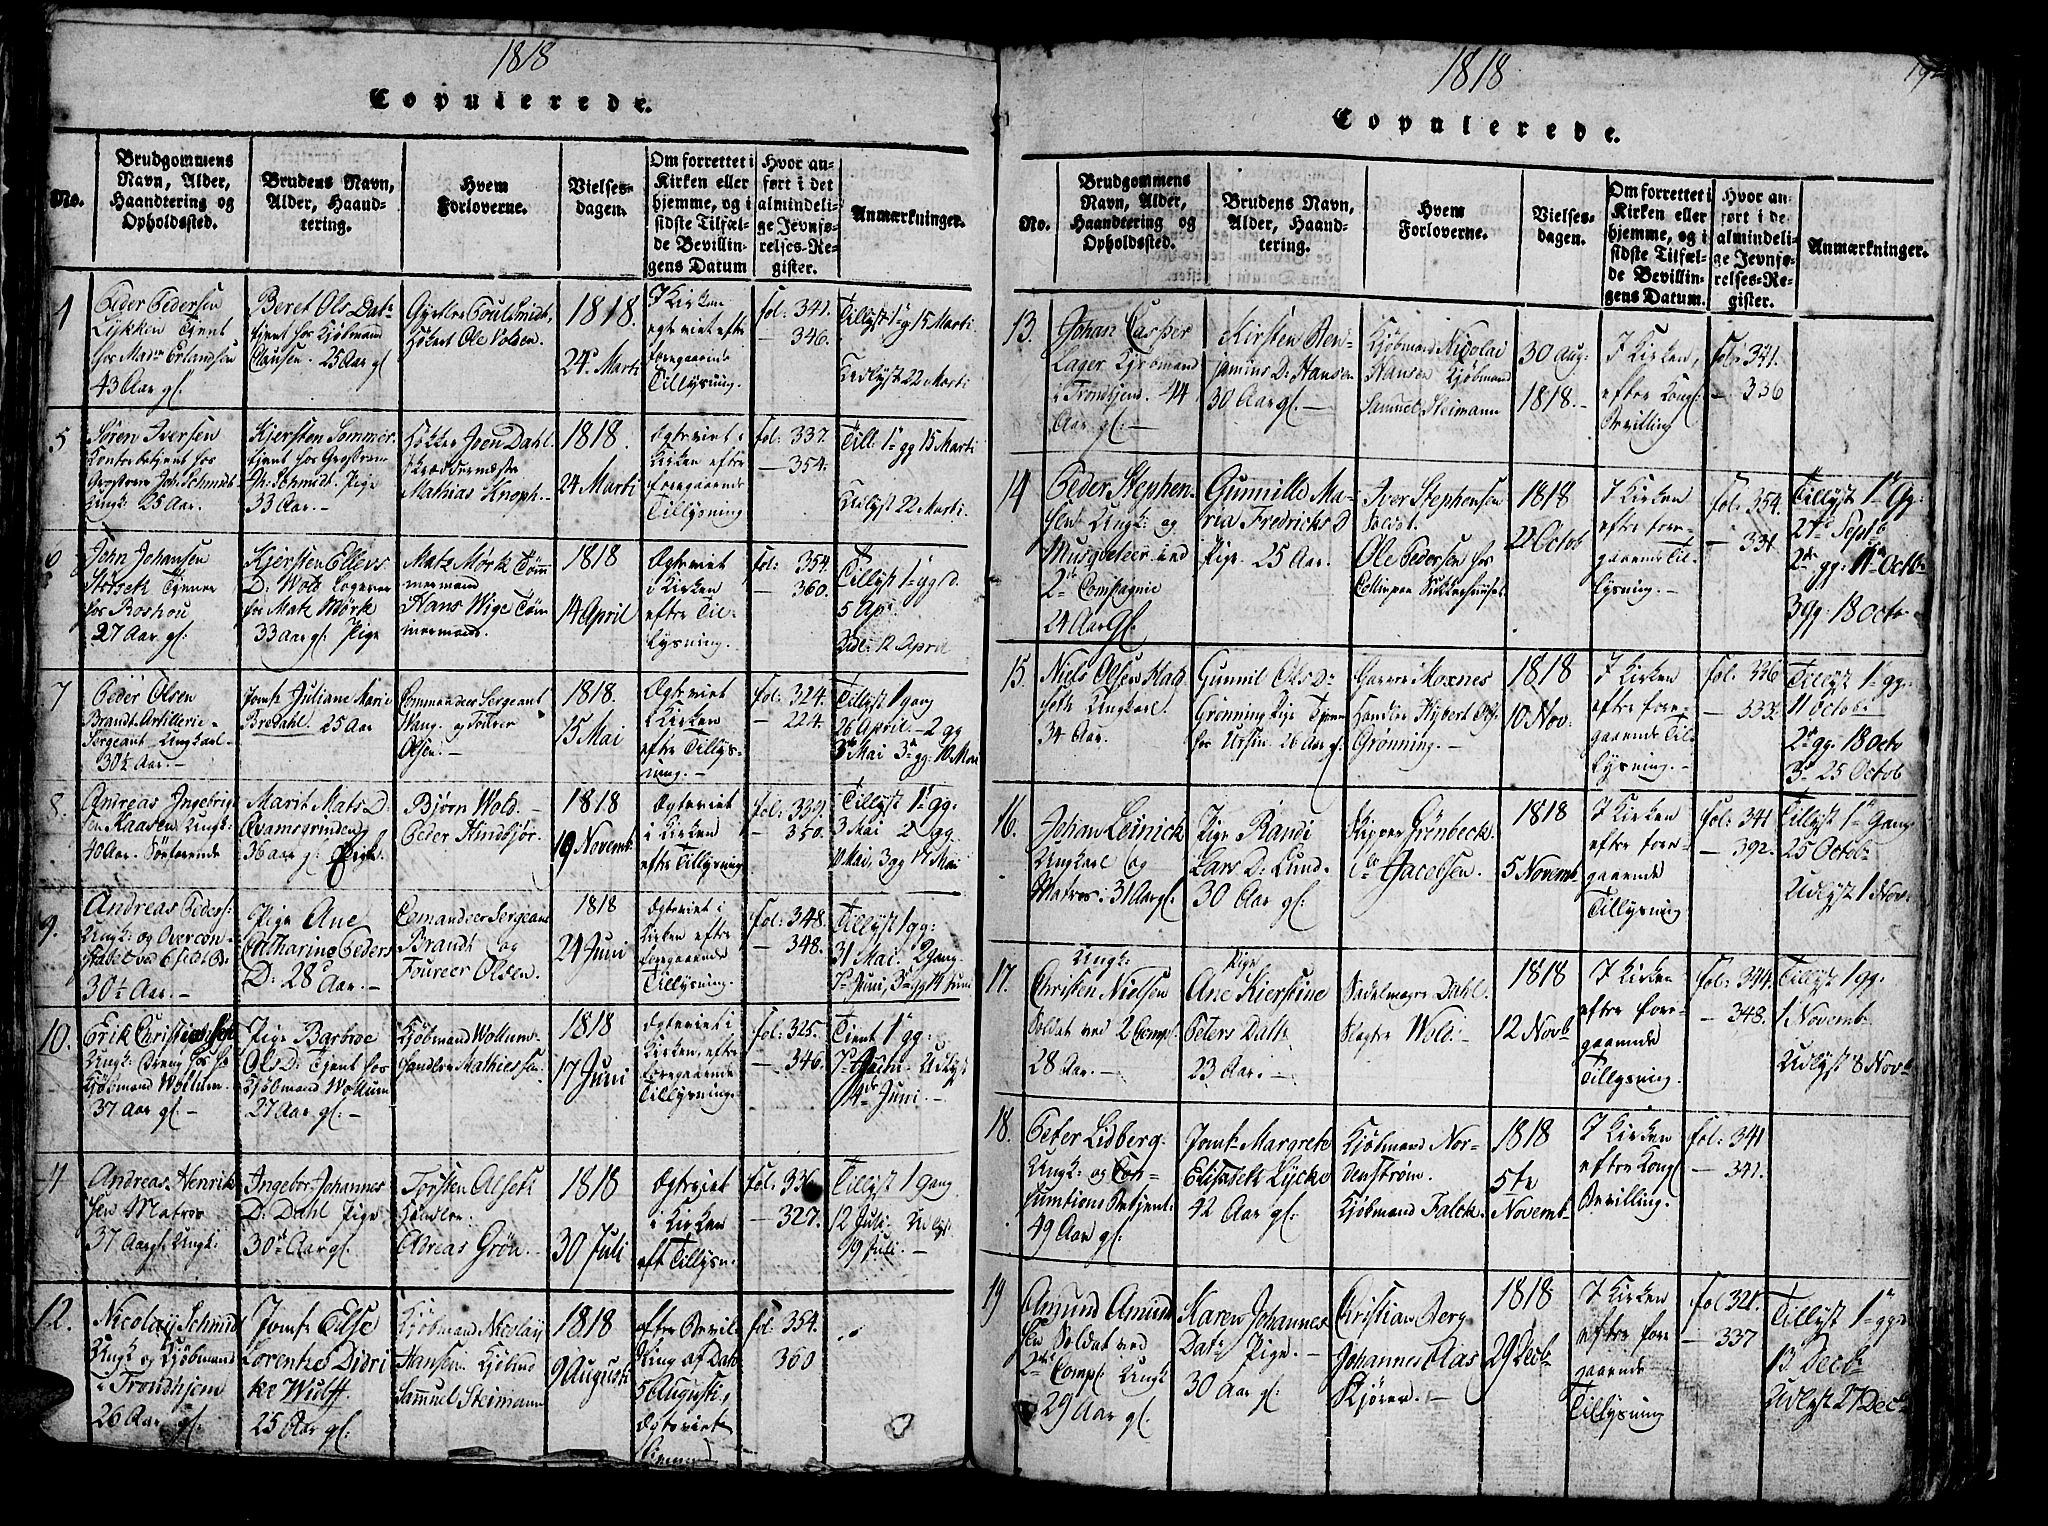 1818
Copulerede.
No.
Brudgommens
Navn, Alder,
Haandtering og
Opholdssted.
Brudens Navn,
Alder, Haand-
tering.
Hvem
Forloverne.
Vielses-
dagen.
Om forrettet i
Kirken eller
hjemme, og i
sidste Tilfæl-
de Bevillin-
gens Datum
Hvor an-
ført i det
almindeli-
ge Jevnfø-
relses-Re-
gister.
Anmærkninger.
4
Peder Pedersen
Lykken Tjent
hos Mad Erlandsen
43 Aar gl.
Beret Ols Datr
tjent hos Kjöbmand
Clausen. 25 Aar gl
Ole Volden.
1818.
24 Marti
I Kirken
efter
foregaaende
Tillysning.
fol: 341.
346.
Tillyst 1 g 15 Marti
Udlyst 22 Marti
5
Søren Iversen
Contorbetjent hos
Joh: Schmidt
Ungk: 25 Aar.
Kjersten Sommer
tjent hos
Schmidt. Pige
33 Aar. –
Joen Dahl.
Skræddermester
Mathias Knoph –
1818.
24 Marti
Ægteviet i
Kirken efter
foregaaende
Tillysning
fol: 337.
– 354.
Till: 1 gg 15 Marti
Udlyst 22 Marti.
6
John Johansen
Tjener
hos Boshou
27 Aar gl.
Kjersten Ellevs
D: Wold Logerer
hos Mats Mörk
33 aar gl. Pige
Matz Mørk Töm
mermand
Hans Wige Töm
mermand.
1818
14 April
Ægteviet
i Kirken
efter Til-
lysning.
fol: 354
– 360.
Tillyst 1 gg d.
5 Apr:
Udl: 12 April
7
Peder Olsen
Brandt Artillerie –
Sergeant – Ungkarl –
30½ Aar. –
Jomfr Juliane Marie
Bredahl. 25 Aar
Commandeer Sergeant
Wang. og Fourer
Olsen. –
1818.
15 Mai
Ægteviet
i Kirken
efter Tillys-
ning. –
fol: 324.
– 224.
Tillyst 1 gang
26 April – 2 gg
3 Mai 3 gg: 10 Mai
8.
Andreas Ingebrig
sen Kaasen Ungk:
40 Aar.
Marit Mats D:
Qvamsgrinden
36 aar gl: Pige
Björn Wold –
Peder Hindbjör.
1818
19 Novemb
Ægteviet
i Kirken
efter Tillysning
fol: 339.
– 350.
Tillyst 1 gg:
3 Mai 2 gg
10 Mai, 3 gg 17 Mai
9.
Andreas Peders:
Ungk: og Overcon-
stabel ved
30½ Aar. –
Pige Ane
Catharine Peders
D: 28 Aar. –
Comandeer Sergeant
Brandt og
Foureer Olsen.
1818
24 Juni
Ægteviet i
Kirken efter
foregaaende
Tillysning.
fol: 348.
– 348.
Tillyst 1 gg:
31 Mai. 2 gang.
7 Juni, 3 gg 14 Juni
10.
Erik Christiansen
Ungk: Dreng hos
Kjöbmand Wollum
37 Aar gl. –
Pige Barbroe
Ols D: Tjent hos
Kjöbmand Wollum
27 Aar gl. –
Kjöbmand Wollum
handler Mathiessen
1818
17 Juni
Ægteviet i
Kirken, efter
foregaaende
Tillysning.
fol: 325.
– 346.
1 gg:
7 Juni. Udlyst
14 Juni. –
11
Andreas Henrik
sen Matros
37 Aargl. Ungk:
Ingebor Johannes
D: Dahl Pige
30 Aar gl.
Torsten Alset
Handler:
Andreas Grön. –
1818
30 Juli
Ægteviet
i Kirken
eft Tillysn:
fol: 336.
– 327.
Tillyst 1 gang
12 Juli. Udlyst
19 Juli. –
12.
Nicolay Schmidt
Ungk og Kjöbmand
i Trondhjem
26 Aar gl.
Jomfr Else
Lorentze Didri
ke Wulff
25 Aar gl:
Kjöbmand Nicolay
Hansen. Kjöbmd
Sammuel Steimann
1818
9 Augusti
efter Bevil-
ling af Dato
5 Augusti,
Ægteviet
fol: 354.
360
1818
Copulerede.
No.
Brudgommens
Navn, Alder,
Haandtering og
Opholdssted.
Brudens Navn,
Alder, Haand-
tering.
Hvem
Forloverne.
Vielses-
dagen.
Om forrettet i
Kirken eller
hjemme, og i
sidste Tilfæl-
de Bevillin-
gens Datum.
Hvor an-
ført i de
almindeli-
ge Jevnfø-
relses-Re-
gister.
Anmærkninger.
13.
Johan Casper
Lager Kjöbmand
i Trondhjem. 44
Aar gl. –
Kirsten Ben-
jamins D: Hansen
30 Aar gl. –
Kjöbmand Nicolai
Hansen Kjöbmand
Samuel Steimann
30 Aug:
1818. –
I Kirken,
efter Kongl:
Bevilling
Fol: 341.
– 336
14
Peder Stephen
sen Ungk: og
Musqueteer ved
2de Compagnie
24 Aar gl.
Gunnild Ma-
ria Fredricks D
Pige. 25 Aar.
Iver Stephensen
Ole Pedersen hos
1818
22 Octob
I Kirken
efter fore-
gaaende Til-
lysning.
fol: 354.
– 331.
Tillyst 1 Gg:
27 Septb
2 gg: 11 Octbr
3 gg: 18 Octor
15.
Niels Olsen
Ungkarl.
34 Aar.
Gunnil Ols Dr
Grönning Pige Tjener
hos Ursin. 26 Aar gl.
Moxnes
Handler
Grönning. –
1818
10 Nov:
I Kirken
efter fore-
gaaende Til-
lysning. –
fol: 336
– 333.
Tillyst 1 gg:
11 Octob:
2 gg: 18 Octo
3 25 Octob
16.
Johan Leinick
Ungkarl og
Matros. 31 Aargl.
Pige Randi
Lars D: Lund.
30 Aar gl.
Skipper Grönbeck
Jacobsen.
1818
5 Novemb
I Kirken
efter fore-
gaaende
Tillysning
fol: 341
– 392.
Tillyst 1 Gang
25 Octob
Udlyst 1 Nov:
17.
Ungk:
Christen Nielsen
Soldat ved 2 Comp:
28 Aar. –
Pige
Ane Kierstine
Peters Datr
23 Aar. –
Sadelmager Dahl.
Slagter Wold.
1818
12 Novb
I Kirken
efter fore-
gaaende
Tillysning.
fol: 344.
– 348.
Tillyst 1 gg:
1 Novemb
Udlyst 8 Novb
18.
Peter Lidberg.
Ungk: og Con-
sumtions Betjent.
49 Aar gl.
Jomfr Margrete
Elisabeth Lycke
42 Aar gl.
Kjöbmand Nor-
denström.
Kjöbmand Falck.
1818
5te
Novemb
I Kirken
efter Kongl
Bevilling.
fol: 341
– 341.
19
Amund Amund
sen Soldat ved
2de Comp: Ungk:
29 Aar gl.
Karen Johannes
Datr Pige.
30 Aar gl.
Christian Berg
Johannes Aas
Kjörer. –
1818
29 Decb
I Kirken
efter fore
gaaende
Tillysning
fol 321.
– 337
Tillyst 1 gg
13 Decb
Udlyst 27 Dec